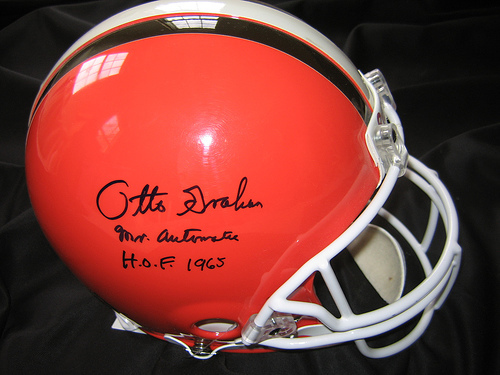 Otto Graham
Mr. Automatic
H.O.F. 1965